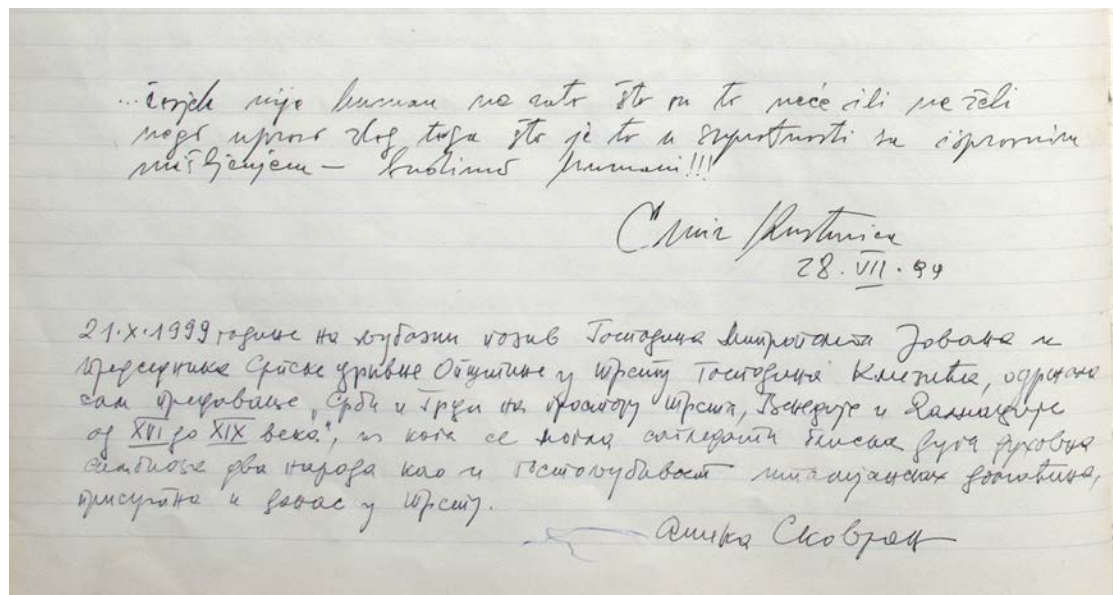 ... čovjek nije human ne zato što on to neće ili ne želi
nego uprvo zbog toga što je to u suprotnosti sa ispravnim
mišljenjem — budimo humani!!!
Emir Kusturica
28. VII. 94
21. X. 1999 године на љубазни позив Господина Митрополита Јована и
председника Српске црквене Општине у Трсту Господина, одржала
сам предавање „Срби и Грци на простору Трста, Венеције и Далмације
од XVI до XIX века", из кога се могла сагледати блиска дуга духовна
симбиоза два народа као и гостољубивост италијанских домаћина,
присутна и данас у Трсту.
Аника Сковран